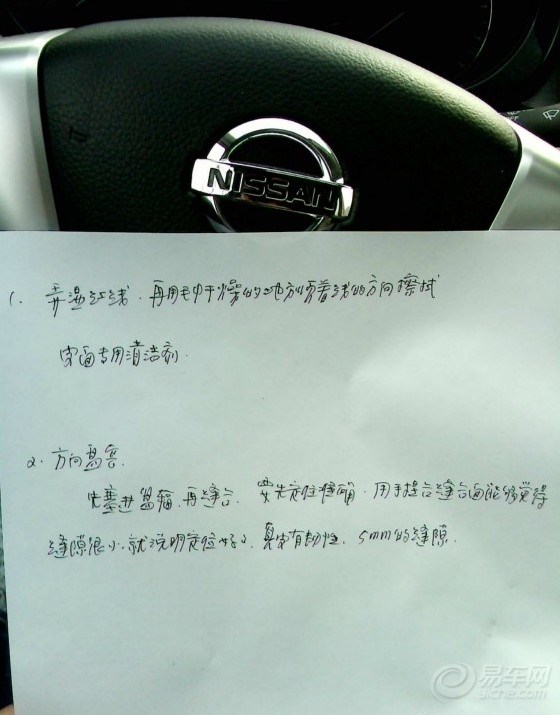 NISSAN
1. 弄湿红线. 再用毛巾干燥的地方顺着线的方向擦拭
家面专用清洁剂.
2. 方向盘套.
先塞进盘辐. 再缝合. 要先定位准确, 用手捏合缝合面能够觉得
缝隙很小. 就说明定位好了. 真皮有韧性. 5mm的缝隙.
易车网
yiche.com